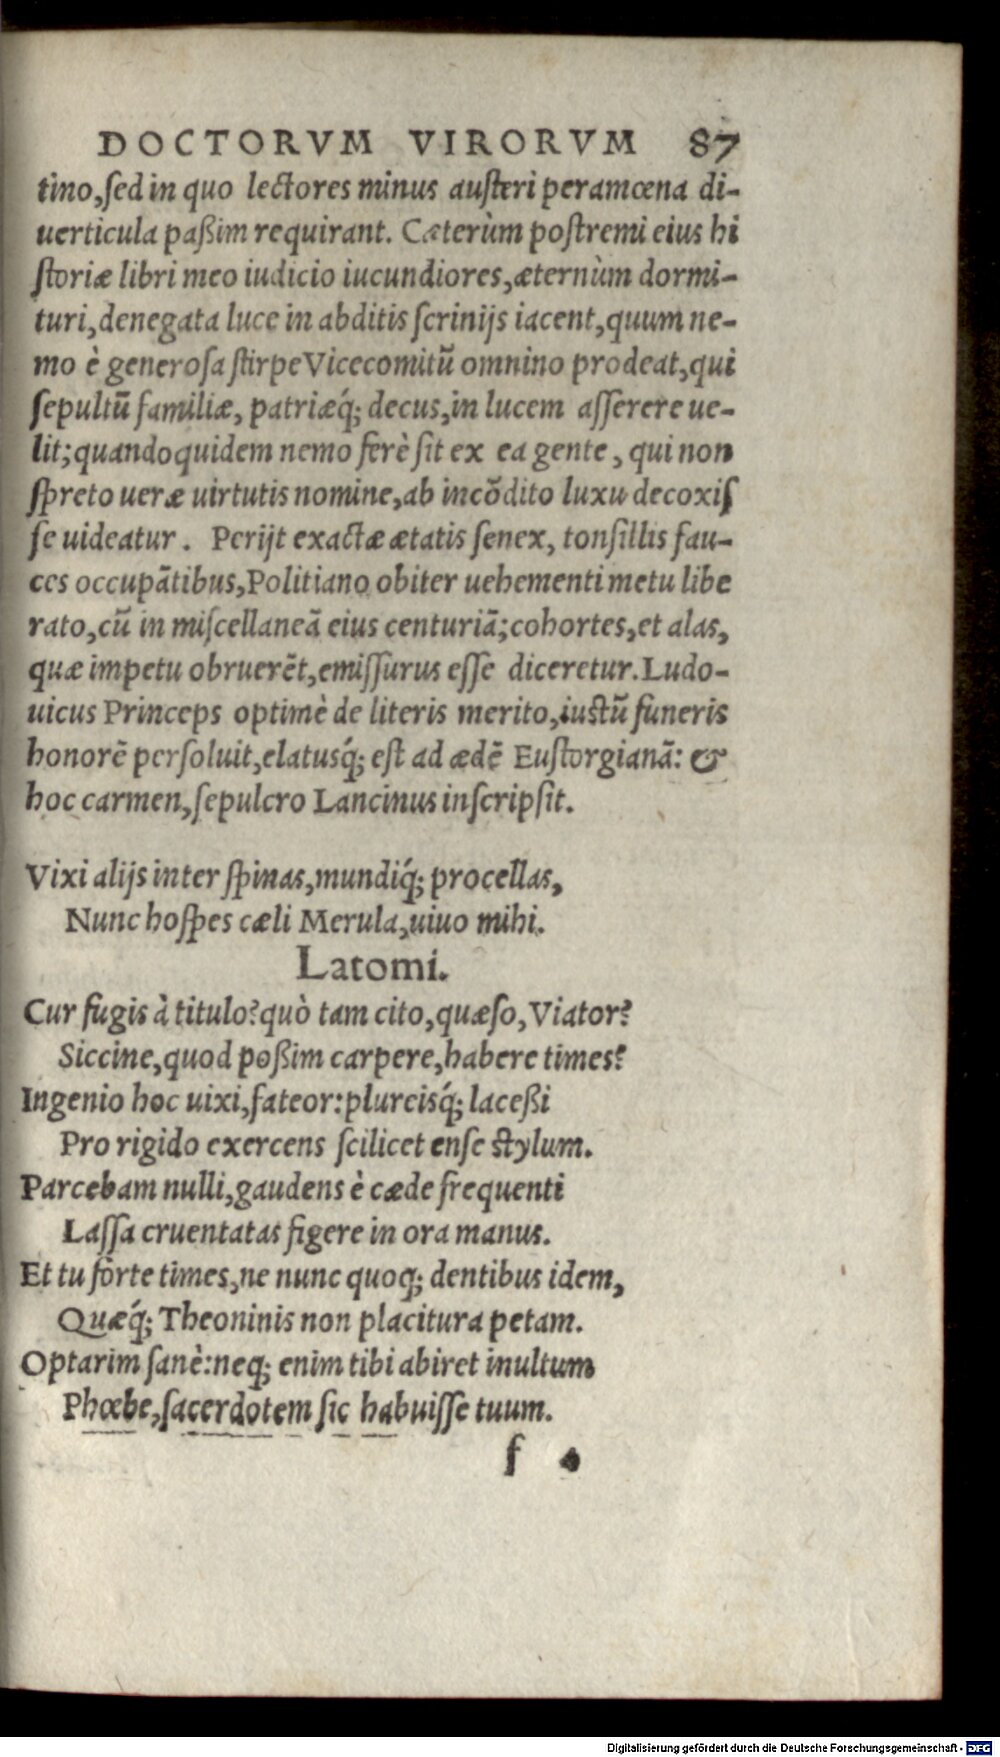 DOCTORVM VIRORVM 87
tino,ſed in quo lectores minus auſteri peramœna di-
uerticula paßim requirant. Cæterùm poſtremi eius hi
ſtoriæ libri meo iudicio iucundiores,æternùm dormi-
turi,denegata luce in abditis ſcrinijs iacent,quum ne-
mo è generoſa ſtirpe Vicecomitũ omnino prodeat,qui
ſepultũ familiæ, patriæq́; decus,in lucem aſſerere ue-
lit;quandoquidem nemo ferè ſit ex ea gente, qui non
ſpreto ueræ uirtutis nomine,ab incõdito luxu decoxiſ
ſe uideatur. Perijt exactæ ætatis ſenex, tonſillis fau-
ces occupãtibus,Politiano obiter uehementi metu libe
rato,cũ in miſcellaneã eius centuriã;cohortes,et alas,
quæ impetu obruerẽt,emiſſurus eſſe diceretur.Ludo-
uicus Princeps optimè de literis merito,iuſtũ funeris
honorẽ perſoluit,elatusq́; eſt ad ædẽ Euſtorgianã: &
hoc carmen,ſepulcro Lancinus inſcripſit.
Vixi alijs inter ſpinas,mundiq́; procellas,
Nunc hoſpes cæli Merula,uiuo mihi.
Latomi.
Cur fugis à titulo?quò tam cito,quæſo,Viator?
Siccine,quod poßim carpere,habere times?
Ingenio hoc uixi,fateor:plureisq́; laceßi
Pro rigido exercens ſcilicet enſe ſtylum.
Parcebam nulli,gaudens è cæde frequenti
Laſſa cruentatas figere in ora manus.
Et tu forte times,ne nunc quoq; dentibus idem,
Quæq́; Theoninis non placitura petam.
Optarim ſanè:neq; enim tibi abiret inultum
Phœbe,ſacerdotem ſic habuiſſe tuum.
f 4
Digitalisierung gefördert durch die Deutsche Forschungsgemeinschaft - DFG